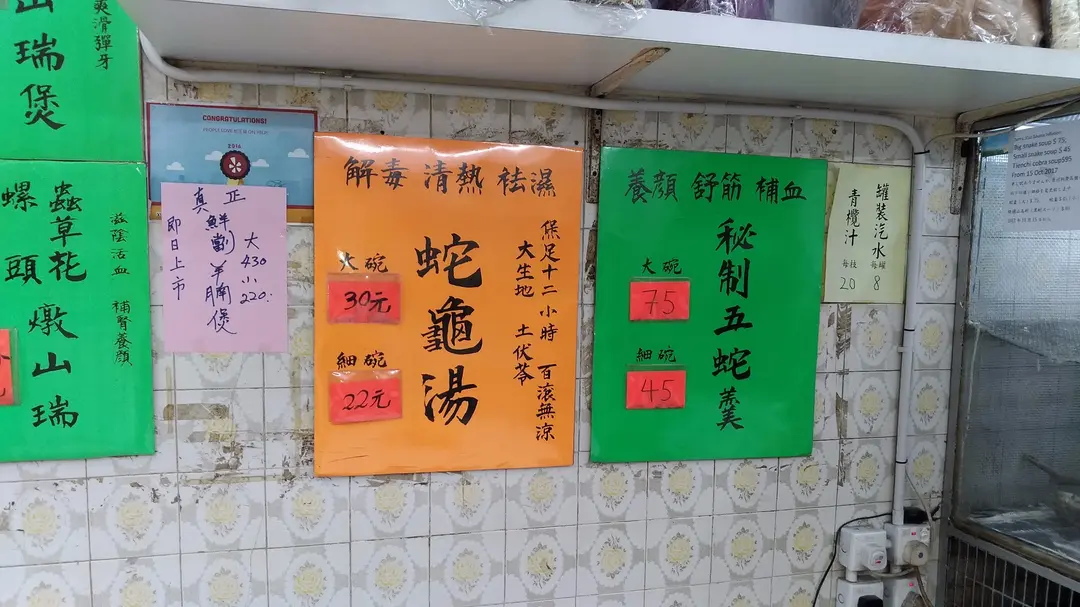 山瑞煲
爽滑彈牙
蟲草花
螺頭燉山瑞
滋陰活血
補腎養顏
CONGRATULATIONS!
2016
真正
鮮劏羊腩煲
大430
小220
即日上市
解毒 清熱 祛濕
蛇龜湯
保足十二小時 百滾無涼
大生地 土伏苓
大碗
30元
細碗
22元
養顏 舒筋 補血
秘制五蛇羹
大碗
75
細碗
45
罐裝汽水 每罐 8
青欖汁 每枝 20
Big snake soup $ 75,
Small snake soup $ 45
Tienchi cobra soup$95
From 15 Oct 2017